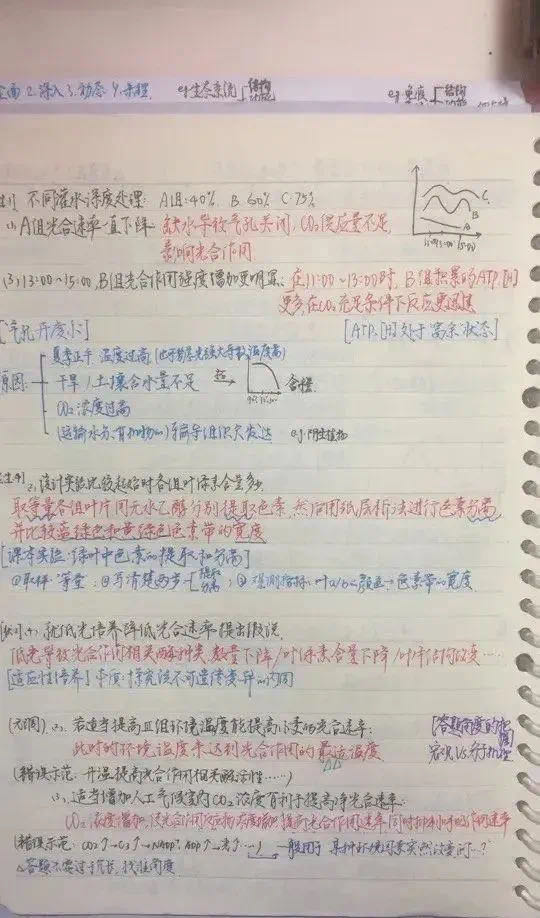 全面 2.深入 3.动态 4.
eg生态系统 结构 功能
eg.免疫 结构 功能
不同灌水深度处理: A组:40%. B 60% C 75%
(1) A组光合速率一直下降: 缺水导致气孔关闭, CO₂供应量不足,
影响光合作用
C
B
A
11:00 13:00 15:00
(3) 13:00~15:00, B组光合作用强度增加更明显: 在11:00~13:00时, B组积累的ATP.[H]
更多,在CO₂充足条件下反应更迅速
[气孔开度小]
[ATP.[H]处于富余状态]
原因:
夏季正午 温度过高
干旱/土壤含水量不足
CO₂浓度过高
(运输水分,有机物的)输导组织欠发达 eg.阴生植物
2, 设计实验比较起始时各组叶绿素含量多少.
取等量各组叶片用无水乙醇分别提取色素,然后用纸层析法进行色素分离,
并比较蓝绿色和黄绿色色素带的宽度
[课本实验:绿叶中色素的提取和分离]
①取样:等量; ②写清楚两步 提取 分离; ③观测指标: 叶a/b→颜色→色素带的宽度
就低光培养降低光合速率提出假说.
低光导致光合作用相关酶种类、数量下降/叶绿素含量下降/叶片结构改变……
[适应性培养]
若适当提高Ⅲ组环境温度能提高小麦的光合速率:
此时的环境温度未达到光合作用的最适温度
[答题角度的把握]
宏观VS分子机理
(错误示范: 升温提高光合作用相关酶活性……)
适当增加人工气候室内CO₂浓度有利于提高净光合速率.
CO₂浓度增加,
(错误示范: CO₂↑→C₃↑→NADP⁺.ADP↑→
一般用于某种环境因素突然改变时…?
△答题不要过于冗长, 找准角度